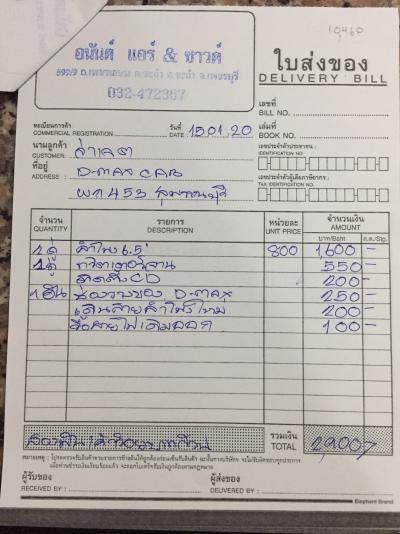 10,460
อนันต์ แอร์ & ซาวด์
032-472367
ใบส่งของ
DELIVERY BILL
เลขที่
BILL NO.
ทะเบียนการค้า
COMMERCIAL REGISTRATION
วันที่ 15.01.20
DATE
เล่มที่
BOOK NO.
นามลูกค้า
CUSTOMER
เลขประจำตัวประชาชน
IDENTIFICATION NO.
ที่อยู่ D-max CAB
ADDRESS
เลขประจำตัวผู้เสียภาษีอากร
TAX IDENTIFICATION NO.
453 สุพรรณบุรี
จำนวน รายการ หน่วยละ จำนวนเงิน
QUANTITY DESCRIPTION UNIT PRICE AMOUNT
บาท/Baht ส.ต./Stg.
2 คู่ ลำโพง 6.5" 800 1,600-
550-
ติดตั้ง CD 200-
1 อัน ช่องวางของ D-max 250-
เดินสายลำโพงใหม่ 200-
รื้อสายไฟเดิมออก 100-
สองพันเก้าร้อยบาทถ้วน
รวมเงิน
TOTAL 2,900-
ผู้รับของ
RECEIVED BY
ผู้ส่งของ
DELIVERED BY
Elephant Brand